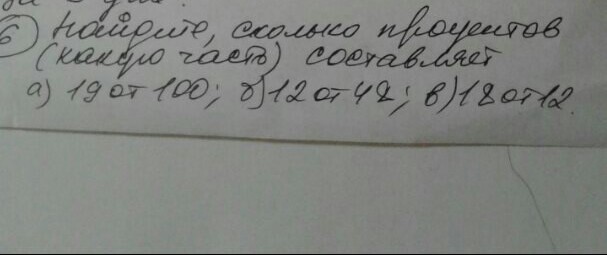 6 Найдите, сколько процентов
(какую часть) составляет
а) 19 от 100; б) 12 от 48; в) 18 от 12.